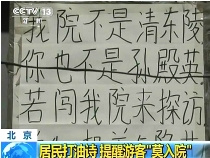 CCTV 13
新闻
我院不是清东陵
你也不是孙殿英
若闯我院来探访
北京
居民打油诗 提醒游客"莫入院"